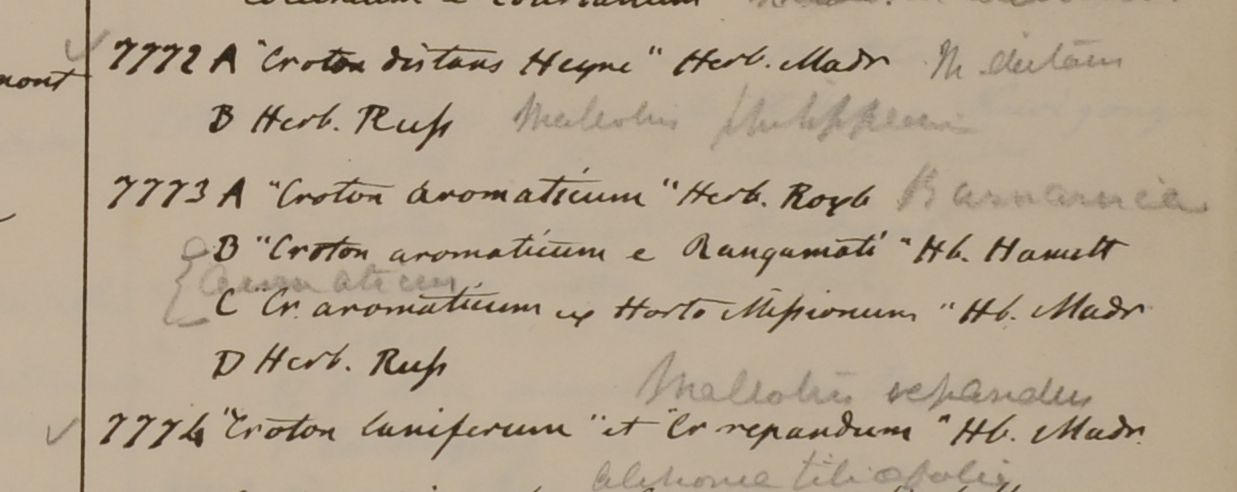 7772 A "Croton distans Heyne" Herb. Madr M. distans
B Herb. Russ Mallotus philippinensis
7773 A "Croton aromaticum" Herb. Roxb
B "Croton aromaticum e Rangamati" Hb. Hamilt
aromaticum
C "Cr. aromaticum ex Horto Missionum" Hb. Madr
D Herb. Russ
Mallotus repandus
7774 "Croton laniferum" et "Cr repandum" Hb. Madr.